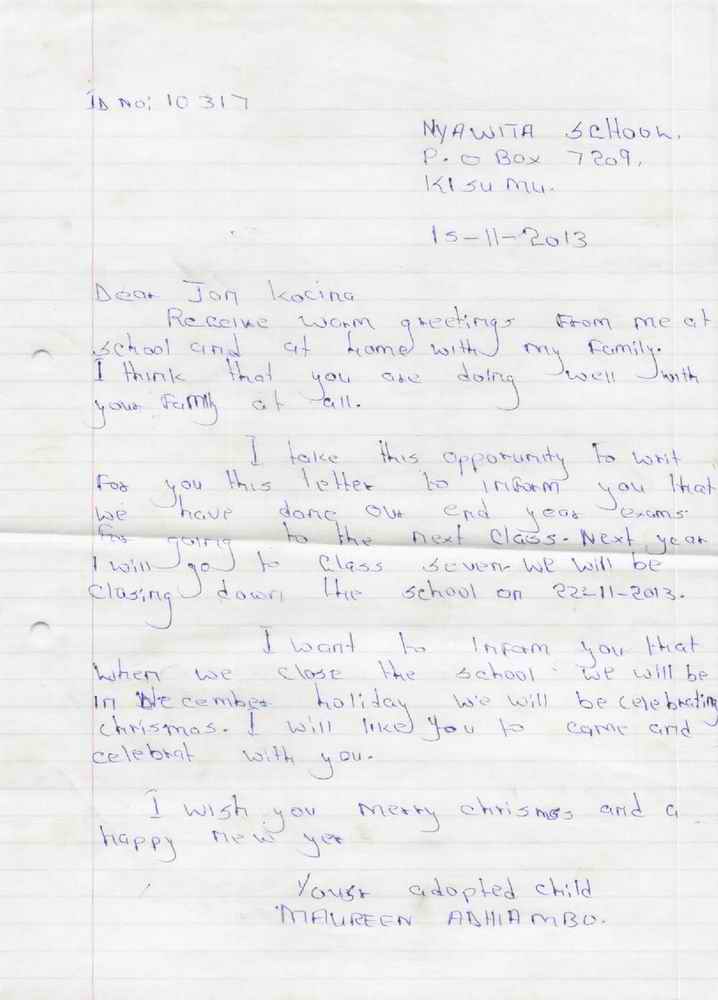 ID No: 10317
NYAWITA SCHOOL.
P. O Box 7209,
KISUMU.
15-11-2013
Dear Jan Kocina
Receive warm greetings From me at
school and at home with my Family.
I think that you are doing well with
your Family at all.
I take this opportunity to writ
For you this letter to inform you that
we have done our end year exams.
For going to the next class. Next year
I will go to class seven. We will be
closing down the school on 22-11-2013.
I want to inform you that
when we close the school we will be
in December holiday we will be celebrating
chrismas. I will like you to come and
celebrat with you.
I wish you merry chrismas and a
happy new yer
Your adopted child
MAUREEN ADHIAMBO.